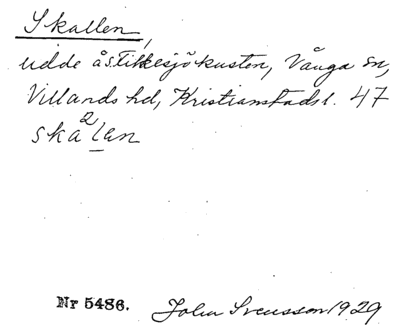 Skallen,
udde å Stikkesjökusten, Vånga sn,
Villands hd, Kristianstads l. 47
ska²lan
Nr 5486. John Svensson 1929